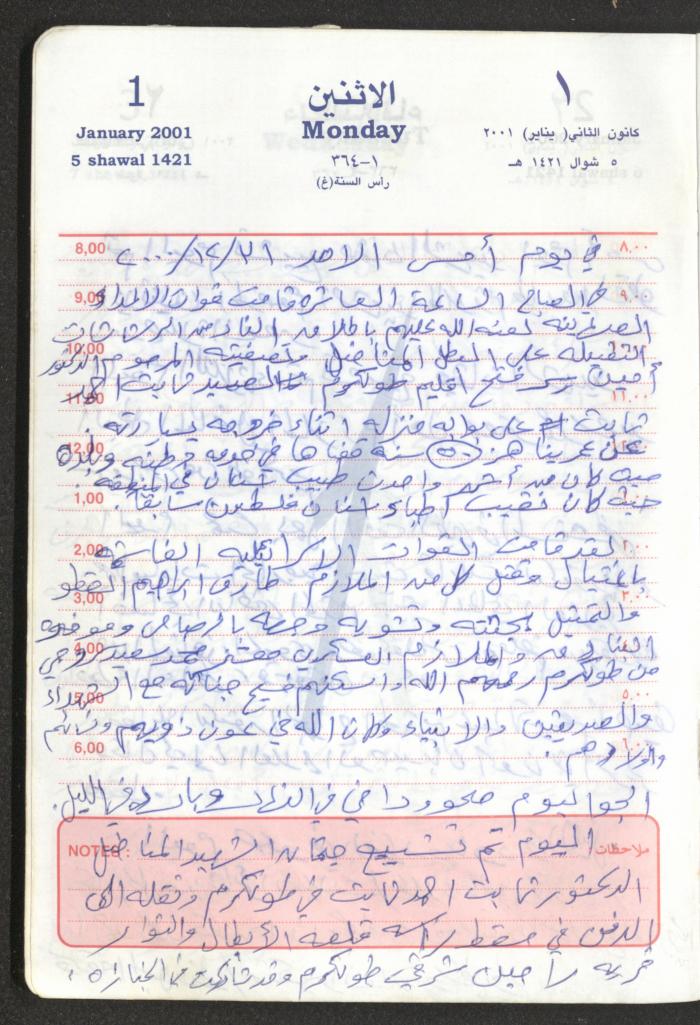 1
الاثنين
١
January 2001
Monday
كانون الثاني( يناير) ٢٠٠١
5 shawal 1421
١-٣٦٤
٥ شوال ١٤٢١ هـ
رأس السنة(غ)
8,00 في يوم أمس الاحد ٣١/١٢/٢٠٠٠ ٨،٠٠
9,00 الصباح الساعة العاشرة قامت قوات ٩،٠٠
لعنة الله عليهم باطلاق النار من الرشاشات
10,00 الثقيلة على البطل المناضل وتصفيته المرحوم الدكتور
أمين سر فتح اقليم طولكرم الشهيد ثابت احمد
11,00 ١١،٠٠
ثابت على بوابة منزله اثناء خروجه بسيارته
12,00 عن عمر يناهز (٥٠) سنة قضاها في خدمة وطنه وبلده
حيث كان من أشهر طبيب اسنان في المنطقة
1,00 حيث كان نقيب أطباء اسنان فلسطين سابقاً
2,00 لقد قامت القوات الاسرائيلية الفاشية
باغتيال وقتل كل من الملازم طارق ابراهيم القطو
3,00
والتمثيل بجثته وتشويه وجهه بالرصاص
4,00 البنادق والملازم
من طولكرم رحمهم الله واسكنهم فسيح جناته مع الشهداء
5,00 ٥،٠٠
والصديقين والانبياء وكان الله في عون ذويهم ونسائهم
6,00 واولادهم.
الجو اليوم صحو ودافئ في النهار وبارد في الليل.
NOTES : اليوم تم تشييع جثمان الشهيد المناضل ملاحظات
الدكتور ثابت احمد ثابت في طولكرم ونقله الى
الدفن في مسقط راسه قلعة الأبطال والثوار
قرية رامين شرقي طولكرم وقد شاركت في الجنازة.